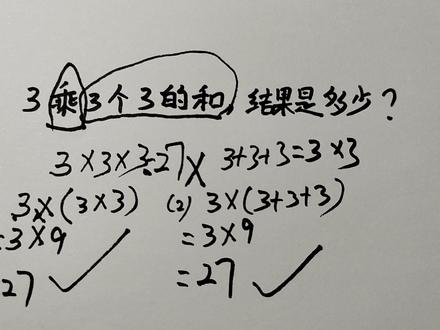 3乘3个3的和,结果是多少?
3×3×3=27× 3+3+3=3×3
3×(3×3) (2) 3×(3+3+3)
=3×9 =3×9
27 =27